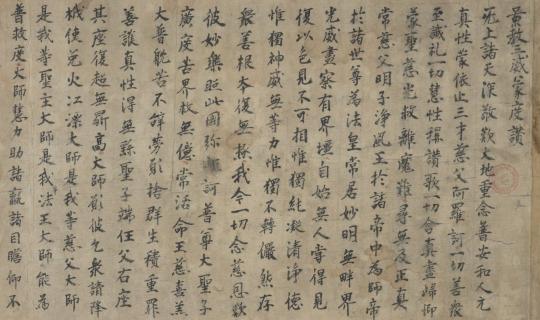 景教三威蒙度讚
无上諸天深敬歎大地重念普安和人元
真性蒙依止三才慈父阿羅訶一切善眾
至誠礼一切慧性稱讚歌一切含真盡歸仰
蒙聖慈光救離魔難尋無及正真
常慈父明子淨風王於諸帝中為師帝
於諸世尊為法皇常居妙明無畔界
光威盡察有界疆自始無人嘗得見
復以色見不可相惟獨純凝清淨德
惟獨神威無等力惟獨不轉儼然存
眾善根本復無極我今一切念慈恩歎
彼妙樂照此國彌訶普尊大聖子
廣度苦界救無億常活命王慈喜羔
大普耽苦不辭勞願捨群生積重罪
善護真性得無繇聖子端任父右座
其座復超無鼎高大師願彼乞眾請降
栰使免火江漂大師是我等慈父大師
是我等聖主大師是我法王大師能為
普救度大師慧力助諸羸諸目瞻仰不